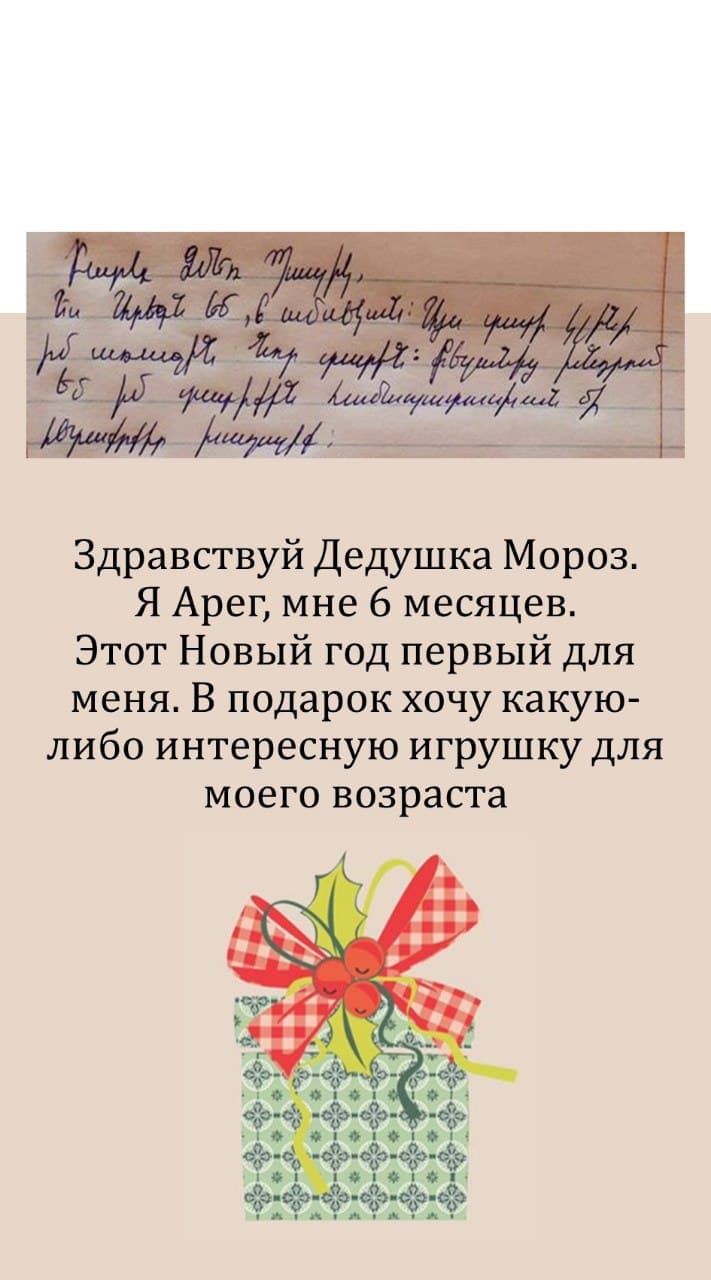 Բարև Ձմեռ Պապիկ,
Ես Արեգն եմ, 6 ամսեկան: Սա կլինի
իմ առաջին Նոր տարին: Քեզանից խնդրում
եմ իմ տարիքին համապատասխան մի
հետաքրքիր խաղալիք:
Здравствуй Дедушка Мороз.
Я Арег, мне 6 месяцев.
Этот Новый год первый для
меня. В подарок хочу какую-
либо интересную игрушку для
моего возраста